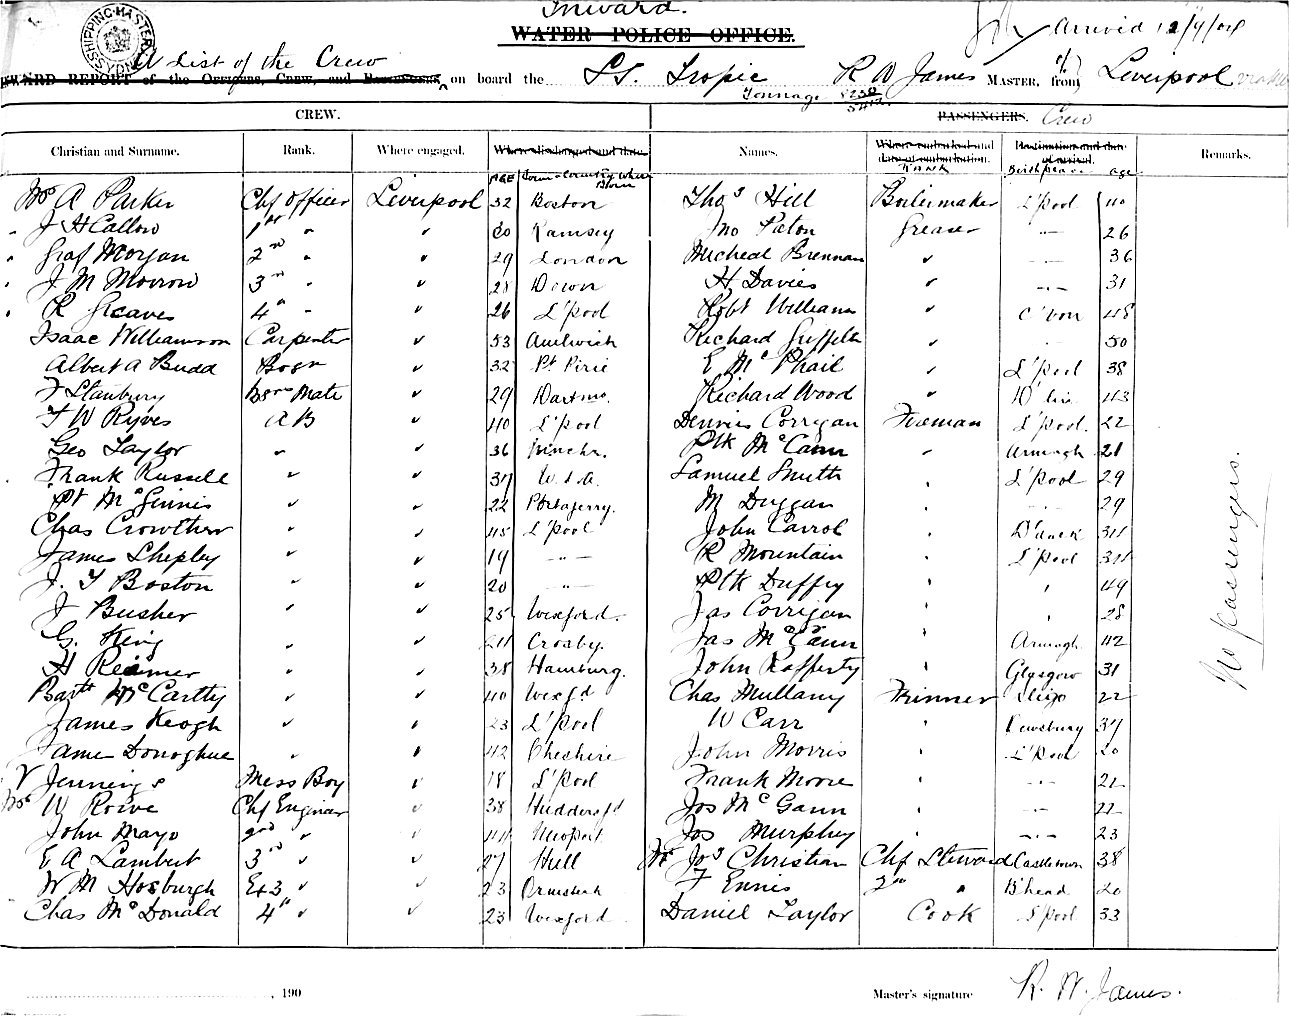 Inward.
WATER POLICE OFFICE.
Arrived 12/4/04
SHIPPING MASTER SYDNEY
A List of the Crew
WARD REPORT of the Officers, Crew, and Passengers on board the S.S. Tropic R W James MASTER, of from Liverpool via
Tonnage 8230
CREW. PASSENGERS. Crew
Christian and Surname. Rank. Where engaged. Where discharged and date. Names. Where embarked and date of embarkation. Destination and date of arrival. Remarks.
AGE Town & Country where Born RANK Birth place age
Mr A Parker Chf Officer Liverpool 32 Boston Thos Hill Boilermaker L'pool 40
" J H Callow 1st " " 30 Ramsey Jno Paton Greaser " 26
" Graf Morgan 2nd " " 29 London Micheal Brennan " " 36
" J M Morrow 3rd " " 28 Down H Davies " " 31
" R Greaves 4th " " 26 L'pool Robt Williams " C'von 48
Isaac Williamson Carpenter " 53 Amlwich Richard Griffiths " " 50
Albert A Budd Bosn " 32 Pt Pirie E McPhail " L'pool 38
F Stanbury Bosns Mate " 29 Dartmo. Richard Wood " 43
F W Ryves A B " 40 L'pool Dennis Corrigan Fireman L'pool. 22
Geo Taylor " " 36 Manchr. Ptk McCann " Armagh 21
Frank Russell " " 37 U.S.A. Samuel Smith " L'pool 29
Pt McGinnis " " 22 Portaferry. M Duggan " " 29
Chas Crowther " " 45 L'pool John Carrol " D'dack 34
James Shepley " " 19 " R Mountain " L'pool 34
J. T Boston " " 20 " Ptk Duffy " " 49
J Busher " " 25 Wexford. Jas Corrigan " " 28
G. King " " 24 Crosby. Jas McCann " Armagh 42
H Reamer " " 38 Hamburg. John Rafferty " Glasgow 31
Bartt McCartty " " 40 Wexfd Chas Mullany Trimmer Sligo 22
James Keogh " " 23 L'pool W Carr " Dewsbury 37
James Donoghue " " 42 Cheshire John Morris " L'Pool 20
V Jennings Mess Boy " 18 L'pool Frank Moore " " 21
Mr W Rowe Chf Engineer " 38 Huddersfd Jos McGann " " 22
John Mayo 2nd " " 44 Newport Jos Murphy " " 23
E A Lambert 3rd " " 27 Hull Mr Jos Christian Chf Steward Castletown 38
W M Hosburgh Ex 3 " " 23 Ormskirk F Ennis 2nd " B'head 20
Chas McDonald 4th " " 23 Wexford Daniel Taylor Cook L'pool 33
No passengers.
, 190 Master's signature R. W. James.